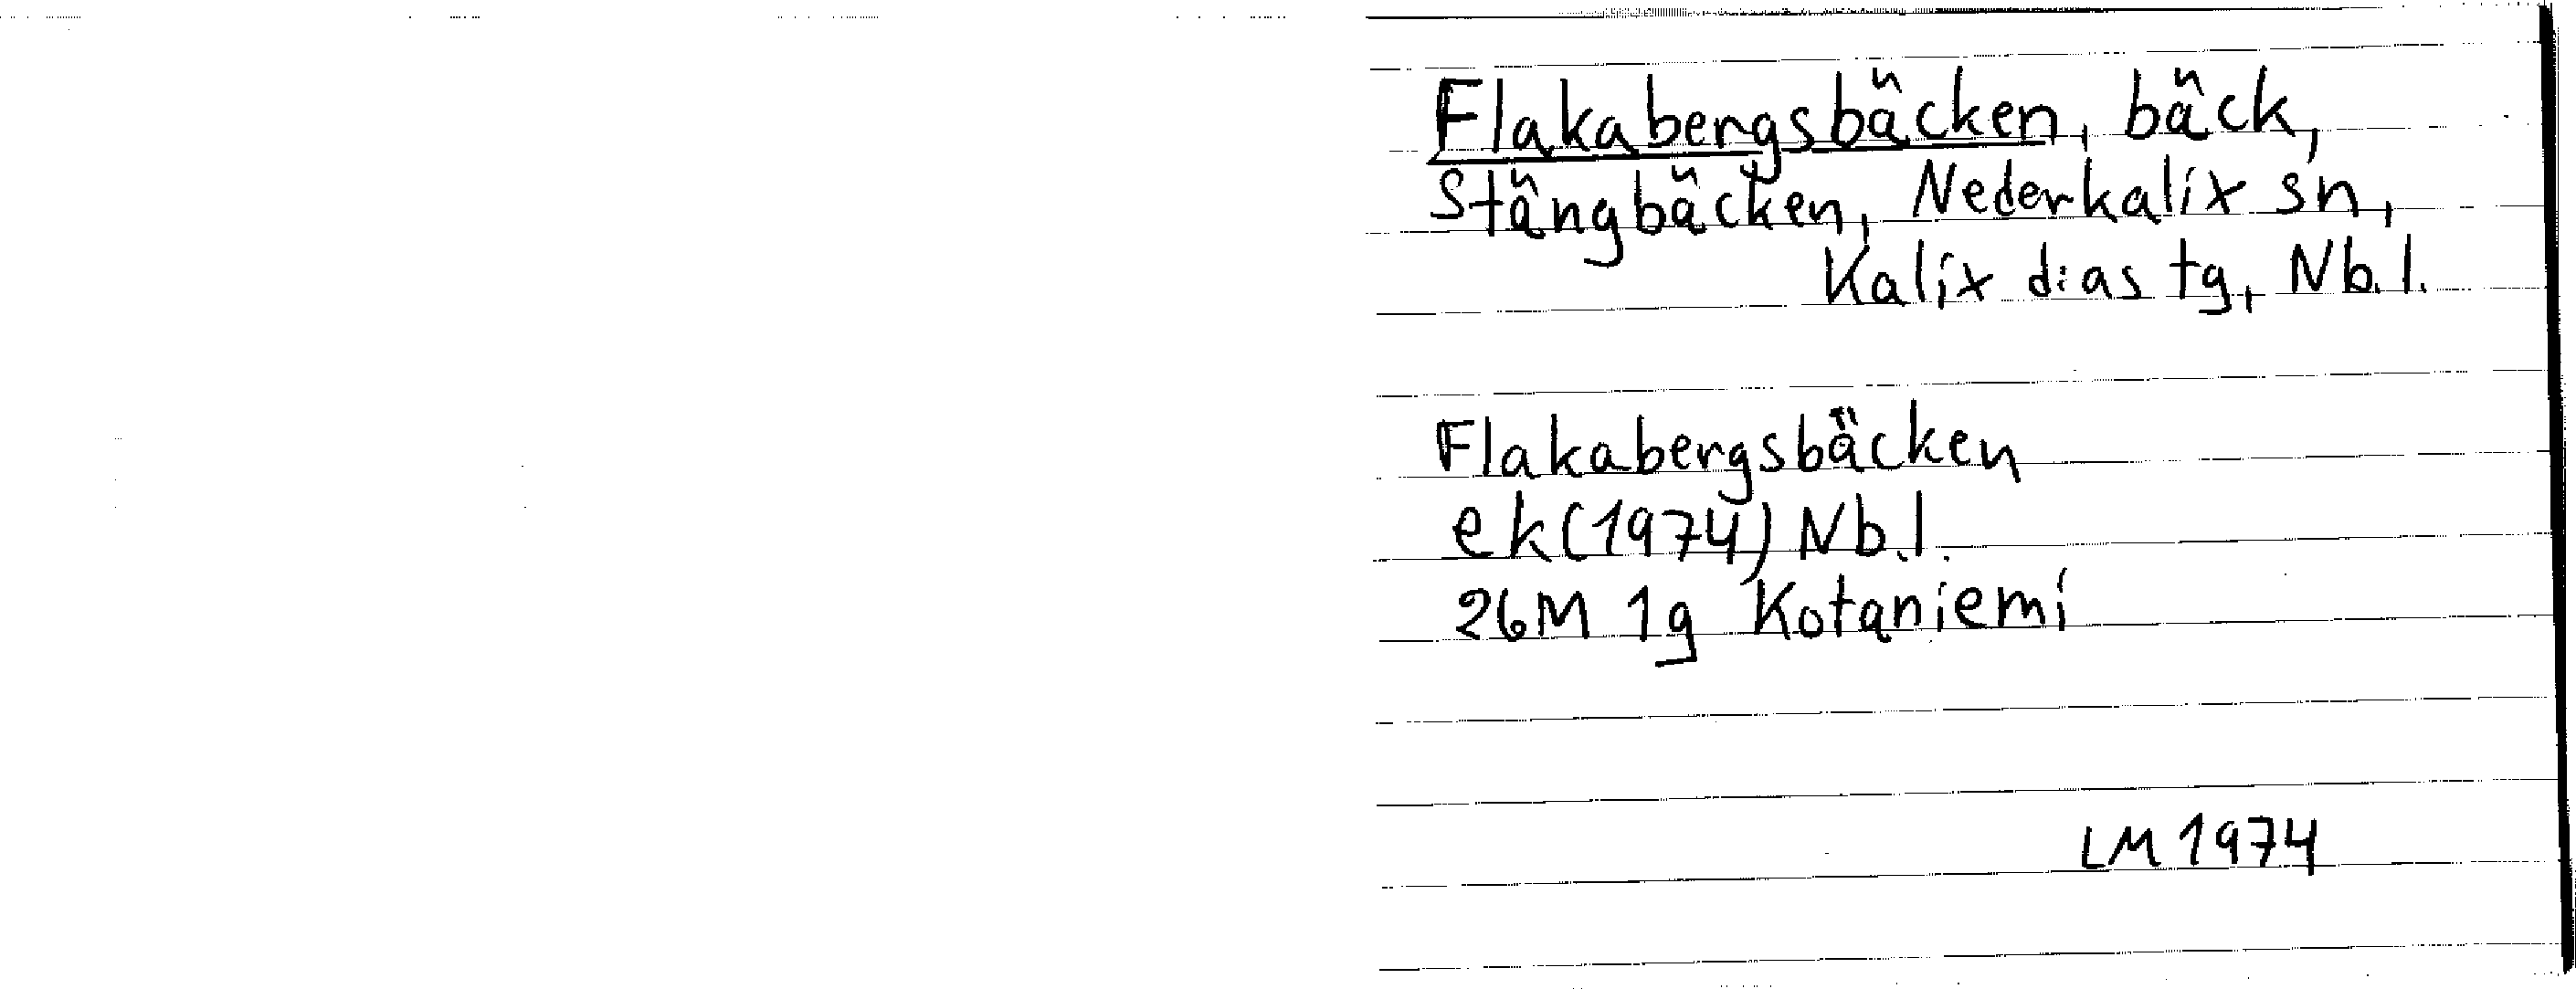 Flakabergsbäcken, bäck,
Stängbäcken, Nederkalix sn,
Kalix d:as tg, Nb.l.
Flakabergsbäcken
ek(1974) Nb.l.
26M 1g Kotaniemi
LM 1974